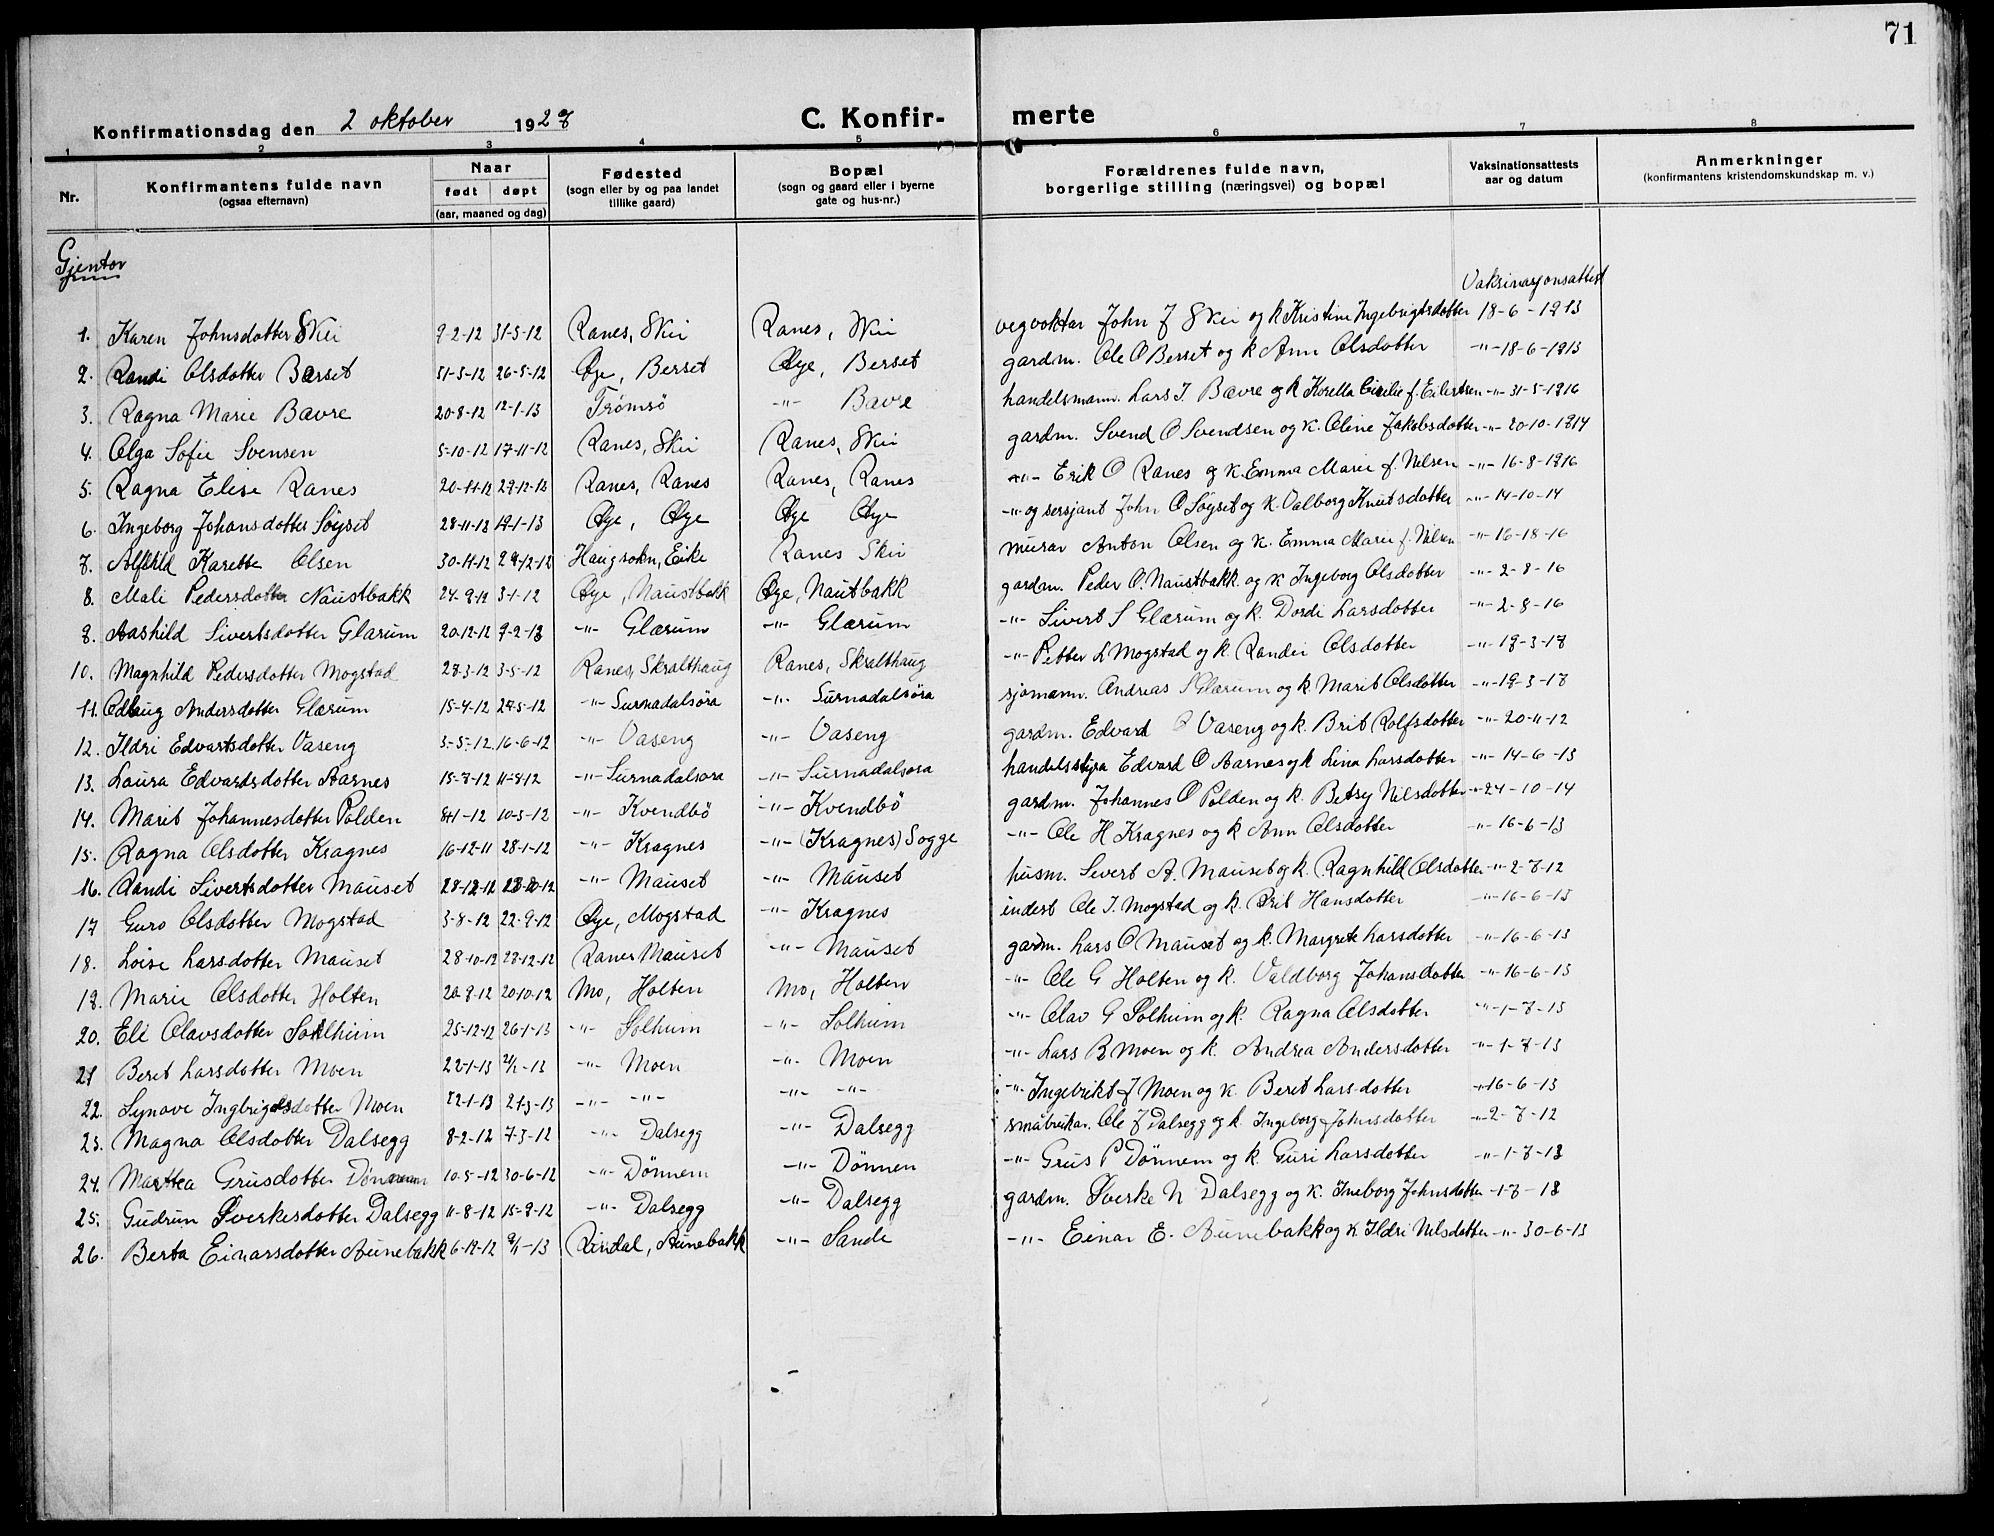 71
Konfirmationsdag den 2 oktober 1927
C. Konfir-merte
1 2 3 4 5 6 7 8
Nr. Konfirmantens fulde navn (ogsaa efternavn) Naar født døpt (aar, maaned og dag) Fødested (sogn eller by og paa landet tillike gaard) Bopæl (sogn og gaard eller i byerne gate og hus-nr.) Forældrenes fulde navn, borgerlige stilling (næringsvei) og bopæl Vaksinationsattests aar og datum Anmerkninger (konfirmantens kristendomskundskap m. v.)
Gjentor
Vaksinasjonsattest
1. Karen Johnsdotter Skei 9-2-12 31-5-12 Ranes, Skei Ranes, Skei vegvoktar John J Skei og k Kristine Ingebrigtsdotter 18-6-1913
2. Randi Olsdotter Bærset 31-3-12 26-5-12 Øye, Berset Øye, Berset gardm. Ole O Berset og k Ann Olsdotter -"- 18-6-1913
3. Ragna Marie Bævre 20-8-12 12-1-13 Tromsö -"- Bævre handelsmann. Lars J. Bævre og k Cecilie f. Eilertsen -"- 31-5-1916
4. Olga Sofie Svensen 5-10-12 17-11-12 Ranes, Skei Ranes, Skei gardm. Svend O Svendsen og k. Oline Jakobsdotter -"- 20-10-1914
5. Ragna Elise Ranes 20-11-12 29-12-12 Ranes, Ranes Ranes, Ranes -"- Erik O Ranes og k. Emma Marie f. Nilsen -"- 16-8-1916
6. Ingeborg Johansdotter Søyset 28-11-12 19-1-13 Øye, Øye Øye Øye -"- og sersjant John O Søyset og k. Valborg Knutsdotter -"- 14-10-14
7. Alfhild Karette Olsen 30-11-12 29-12-12 Haugsokn, Eike Ranes Skei murar Anton Olsen og k. Emma Marie f. Nilsen -"- 16-18-16
8. Mali Pedersdotter Naustbakk 24-9-12 3-1-12 Øye, Naustbakk Øye, Nautbakk gardm. Peder O. Naustbakk og k Ingeborg Olsdotter -"- 2-8-16
9. Aashild Sivertsdotter Glærum 20-12-12 9-2-13 -"- Glærum -"- Glærum -"- Sivert S Glærum og k. Dordi Larsdotter -"- 2-8-16
10. Magnhild Pedersdotter Mogstad 28-3-12 3-5-12 Ranes, Skralthaug Ranes, Skralthaug -"- Petter L Mogstad og k. Randi Olsdotter -"- 19-3-17
11. Odlaug Andersdotter Glærum 15-4-12 27-5-12 -"- Surnadalsøra -"- Surnadalsøra sjømann. Andreas S Glærum og k. Marit Olsdotter -"- 19-3-17
12. Ildri Edvartsdotter Vaseng 3-5-12 16-6-12 -"- Vaseng -"- Vaseng gardm. Edvard Vaseng og k. Brit Rolfsdotter -"- 20-11-12
13. Laura Edvardsdotter Aarnes 15-7-12 11-8-12 -"- Surnadalsøra -"- Surnadalsøra handelsstyra Edvard O Aarnes og k Lina Larsdotter -"- 14-6-13
14. Marit Johannesdotter Polden 8-1-12 10-3-12 -"- Kvendbö -"- Kvendbö gardm. Johannes O Polden og k. Betsy Nilsdotter -"- 24-10-14
15. Ragna Olsdotter Kragnes 16-12-11 28-1-12 -"- Kragnes -"- (Kragnes) Sogge -"- Ole H Kragnes og k Ann Olsdotter -"- 16-6-13
16. Randi Sivertsdotter Mauset 28-12-12 -"- Mauset -"- Mauset husm. Sivert A. Mauset og k. Ragnhild Olsdotter -"- 2-7-12
17 Guro Olsdotter Mogstad 3-8-12 22-9-12 Øye, Mogstad -"- Kragnes inderst Ole J. Mogstad og k. Brit Hansdotter -"- 16-6-13
18. Loise Larsdotter Mauset 28-10-12 28-12-12 Ranes Mauset -"- Mauset gardm. Lars O Mauset og k. Margrete Larsdotter -"- 16-6-13
19. Marie Olsdotter Holten 20-9-12 20-10-12 Mo, Holten Mo, Holten -"- Ole G Holten og k. Valdborg Johansdotter -"- 16-6-13
20. Eli Olavsdotter Solheim 25-12-12 26-1-13 -"- Solheim -"- Solheim -"- Olav G Solheim og k. Ragna Olsdotter -"- 1-7-13
21 Beret Larsdotter Moen 22-1-13 2/1-13 -"- Moen -"- Moen -"- Lars B Moen og k. Andrea Andersdotter -"- 1-7-13
22. Synøve Ingbrigtsdotter Moen 22-1-13 21-3-13 -"- -"- -"- -"- -"- Ingebrikt J Moen og k Beret Larsdotter -"- 16-6-13
23. Magna Olsdotter Dalsegg 8-2-12 7-3-12 -"- Dalsegg -"- Dalsegg småbrukar. Ole J Dalsegg og k. Ingeborg Johnsdotter -"- 2-7-12
24. Marthea Grusdotter Dönnem 10-5-12 30-6-12 -"- Dönnem -"- Dönnem -"- Grus P Dönnem og k. Guri Larsdotter -"- 1-7-13
25. Gudrun Sverkesdotter Dalsegg 11-8-12 15-9-12 -"- Dalsegg -"- Dalsegg gardm. Sverke N Dalsegg og k. Ineborg Johnsdotter -"- 1-7-13
26. Berta Einarsdotter Aunebakk 6-12-12 9/1-13 Rindal, Aunebakk -"- Sande -"- Einar E. Aunebakk og k Ildri Nilsdotter -"- 30-6-13